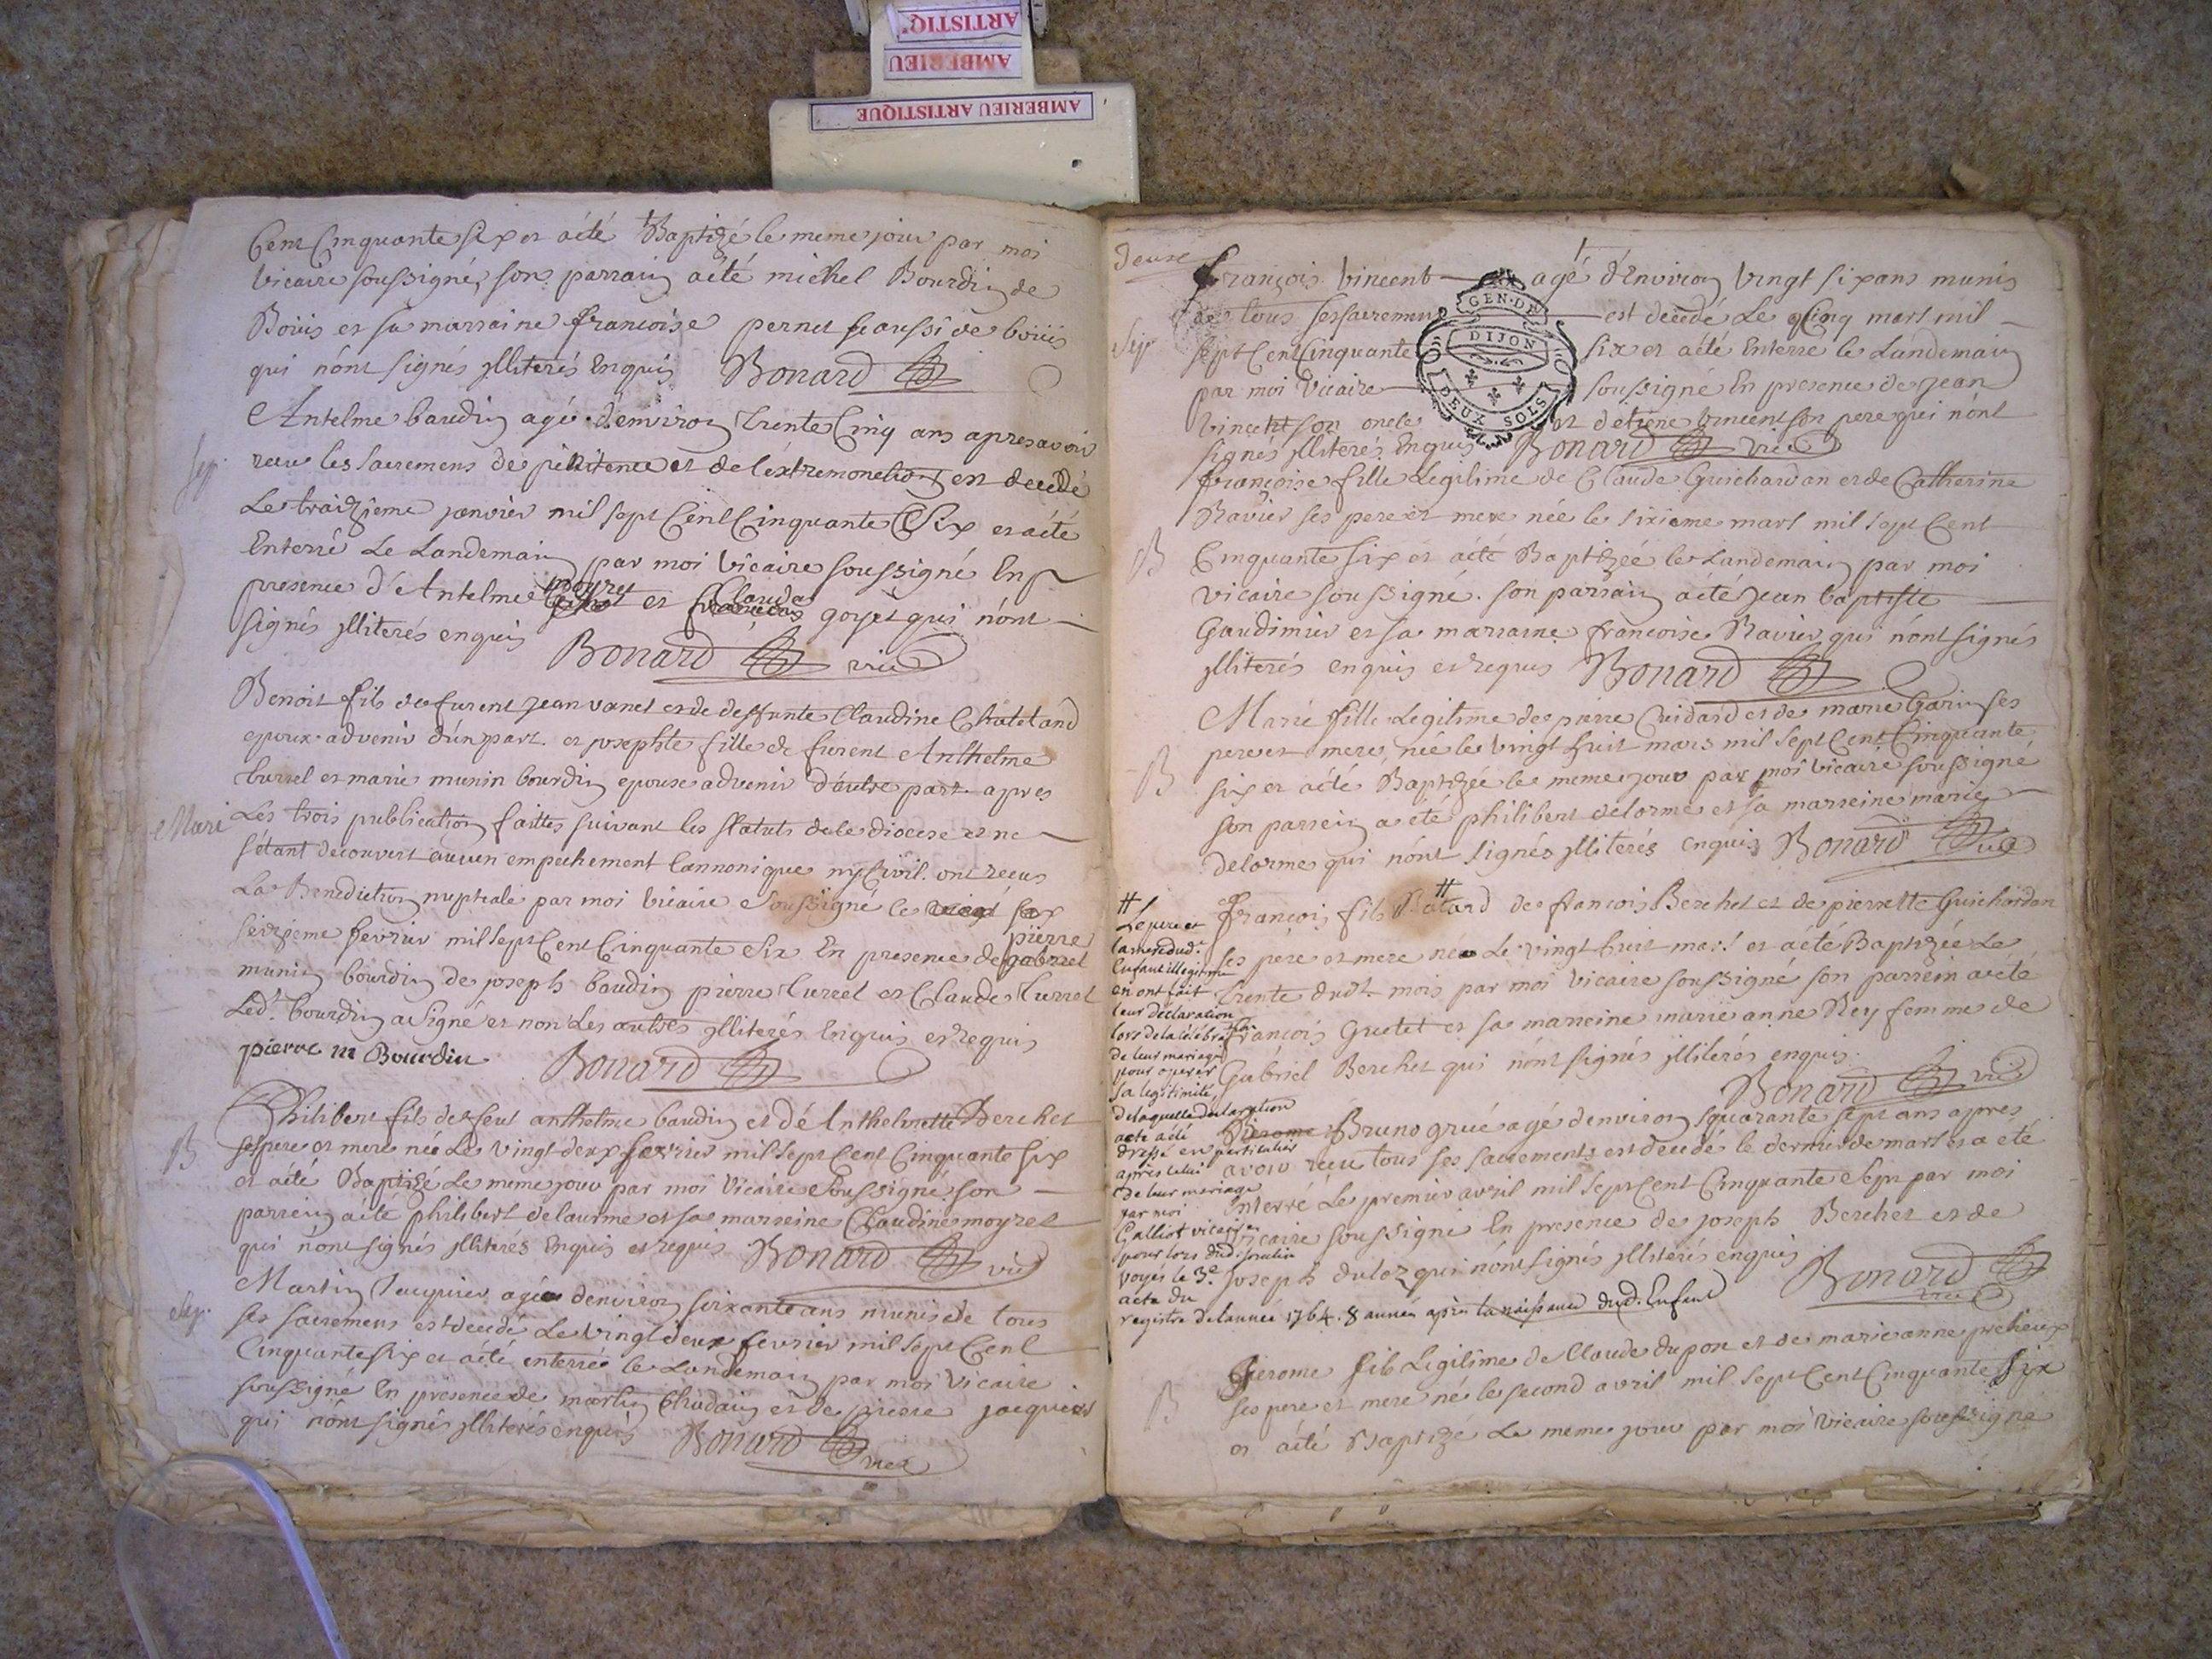 ARTISTIQ'
AMBERIEU
AMBERIEU ARTISTIQUE
Cent Cinquante six et aété Baptizé le meme jour par moi
vicaire soussigné, son parrain aété michel Bourdin de
Boüis et sa marraine francoise pernet aussi de boüis
qui nónt signés jlliterés enquis Bonard
Antelme baudin agé d'environ trente Cinq ans apres avoir
Sep.
receu les sacremens de penitence et de léxtremonction est decédé
Le traizieme janvier mil sept Cent Cinquante Six et aété
Enterré Le Landemain par moi vicaire soussigné En
presence d'Antelme moyret et Claude goyet qui nónt
signés jlliterés enquis Bonard vic
Benoit fils de furent jean vanet et de deffunte Claudine Châteland
epoux advenir dún part et josephte fille de furent Anthelme
turrel et marie munin bourdin epouse advenir dáutre part apres
Mari
Les trois publication faittes suivant les statuts de le diocese et ne
sétant decouvert aucun empechement Cannonique ny Civil ont receus
La Benediction nuptiale par moi vicaire soussigné le
seizieme fevrier mil sept Cent Cinquante Six En presence de pierre
munin bourdin de joseph baudin pierre turrel et Claude turrel
Led.t bourdin a signé et non Les autres jlliterés Enquis et requis
pierre m Bourdin Bonard
Philibert fils de feu anthelme baudin et dé Anthelmette Berchet
B
ses pere et mere né Le vingt deux fevrier mil sept Cent Cinquante six
et aété Baptizé Le meme jour par moi vicaire soussigné son
parrein aété philibert delaurme et sa marreine Claudine moyret
qui nónt signés jlliterés Enquis et requis Bonard vic
Martin jacquier agé denviron soixante ans munis de tous
Sep.
ses sacremens est decedé Le vingt deux fevrier mil sept Cent
Cinquante six et aété enterré le Landemain par moi vicaire
soussigné En présence de martin Chudain et de pierre jacquier
qui nónt signés jlliterés enquis Bonard vic
deuxe
François vincent agé d'Environ vingt six ans munis
de tous ses sacremens est decédé Le Cinq mars mil
Sep.
sept Cent Cinquante six et aété Enterré le Landemain
par moi vicaire soussigné En presence de jean
vincent son oncle et detiene vincent son pere qui nónt
signés jlliterés Enquis Bonard vic
GEN. DE
DIJON
DEUX SOLS
françoise fille Legitime de Claude Guichardan et de Catherine
Ravier ses pere et mere née le sixieme mars mil sept Cent
B
Cinquante six et aété Baptizée le Landemain par moi
vicaire soussigné. son parrain aété jean baptiste
Gaudimier et sa marraine francoise Ravier qui nónt signés
jlliterés enquis et requis Bonard
Marie fille Legitime de pierre Cuidard et de marie Garin ses
pere et mere, née le vingt huit mars mil sept Cent Cinquante
B
six et aété Baptizée le meme jour par moi vicaire soussigné
son parrein a été philibert delorme et sa marreine marie
delorme qui nónt signés jlliterés enquis Bonard vic
françois fils Batard de francois Berchet et de pierrette Guichardan
ses pere et mere né Le vingt huit mars et aété Baptizée Le
trente dudt. mois par moi vicaire soussigné son parrein aété
françois Guetet et sa marreine marie anne Rey femme de
Gabriel Berchet qui nónt signés jlliterés enquis.
Bonard vic
# Le pere et
la mere dud.t
Enfant illegitime
en ont fait
leur déclaration
lors de la célébra
tion
de leur mariage
pour operer
sa legitimité,
de laquelle declaration
acte a été
dressé en particulier
après celui
de leur mariage
par moi
Galliot vicaire
pour lors dud.
voyés le 3e.
acte du
registre de l'année 1764. 8 années après la naissance dud. Enfant
Bruno grüé agé denviron quarante sept ans apres
avoir receu tous ses sacrements est decedé le dernier de mars et a été
Interré Le premier avril mil sept Cent Cinquante Six par moi
vicaire soussigné En presence de joseph Berchet et de
joseph duloz qui nónt signés jlliterés enquis
Bonard vic
Jierome fils Legitime de Claude dupon et de marie anne preheux
B
ses pere et mere né le second avril mil sept Cent Cinquante Six
et aété Baptizé Le meme jour par moi vicaire soussigne